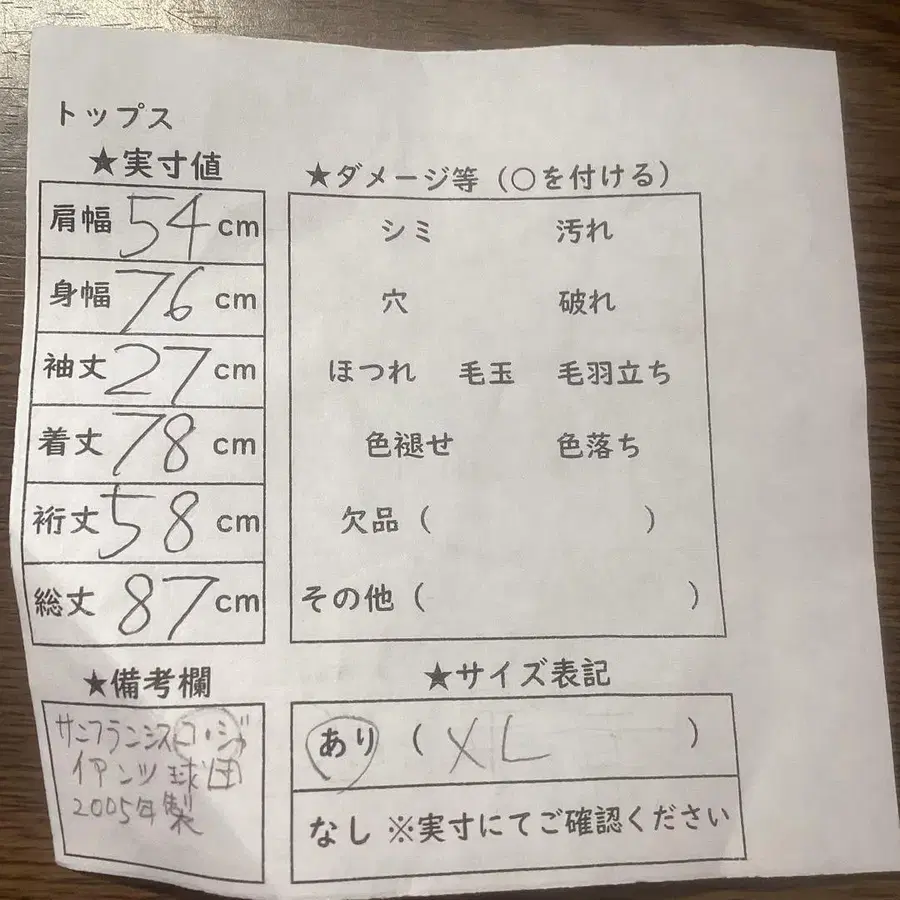 トップス
★実寸値
肩幅 54 cm
身幅 76 cm
袖丈 27 cm
着丈 78 cm
裄丈 58 cm
総丈 87 cm
★ダメージ等（○を付ける）
シミ 汚れ
穴 破れ
ほつれ 毛玉 毛羽立ち
色褪せ 色落ち
欠品（ ）
その他（ ）
★備考欄
サンフランシスコ・ジャ
イアンツ球団
2005年製
★サイズ表記
あり（ XL ）
なし ※実寸にてご確認ください